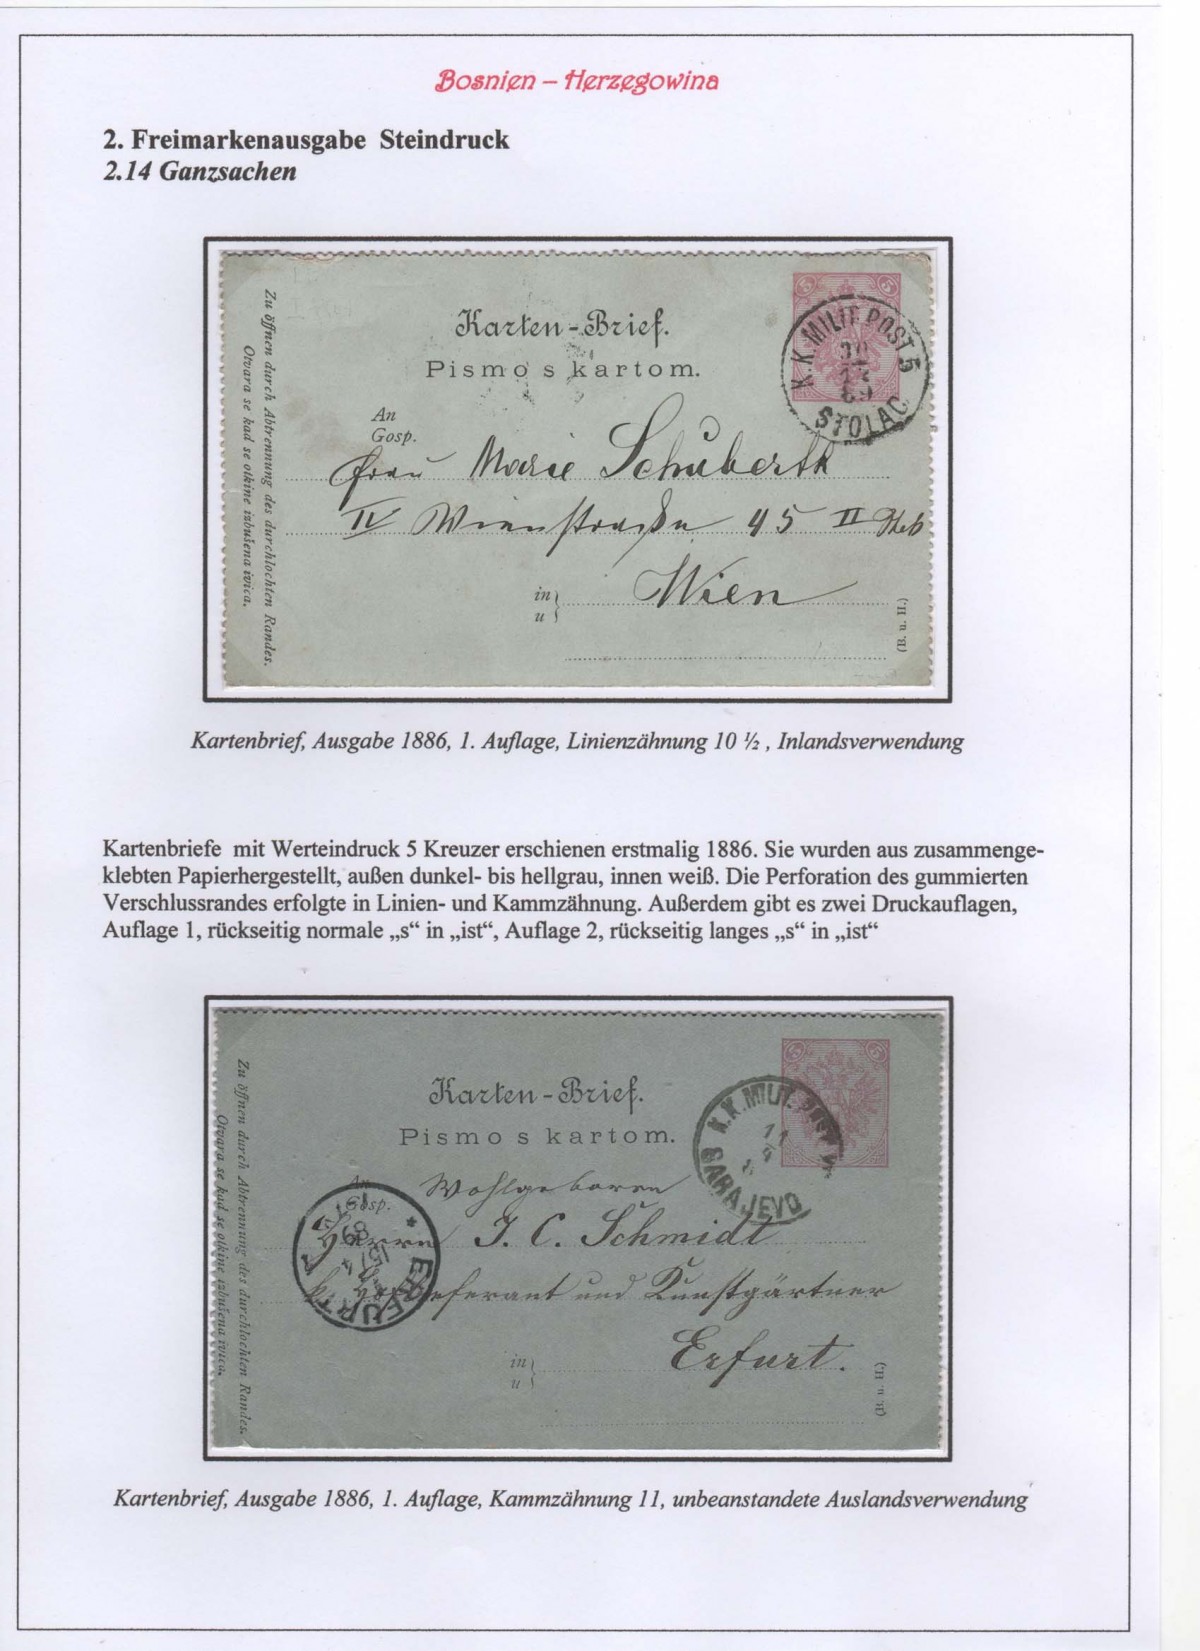 Bosnien – Herzegowina
2. Freimarkenausgabe Steindruck
2.14 Ganzsachen
Zu öffnen durch Abtrennung des durchlochten Randes.
Otvara se kad se otkine izbušena ivica.
Karten-Brief.
Pismo s kartom.
5 5
K.K. MILIT. POST 5
30
89
STOLAC
An
Gosp.
Frau Marie Schuberth
IV Wienstraße 45 II
in
u
Wien
(B. u. H.)
Kartenbrief, Ausgabe 1886, 1. Auflage, Linienzähnung 10 ½ , Inlandsverwendung
Kartenbriefe mit Werteindruck 5 Kreuzer erschienen erstmalig 1886. Sie wurden aus zusammenge-
klebten Papierhergestellt, außen dunkel- bis hellgrau, innen weiß. Die Perforation des gummierten
Verschlussrandes erfolgte in Linien- und Kammzähnung. Außerdem gibt es zwei Druckauflagen,
Auflage 1, rückseitig normale „s“ in „ist“, Auflage 2, rückseitig langes „s“ in „ist“
Zu öffnen durch Abtrennung des durchlochten Randes.
Otvara se kad se otkine izbušena ivica.
Karten-Brief.
Pismo s kartom.
5 5
K.K. MILIT. POST
11
4
SARAJEVO
An
Gosp.
Wohlgeboren
Herrn J. C. Schmidt
Hoflieferant und Kunstgärtner
ERFURT
15 4
89
in
u
Erfurt.
(B. u. H.)
Kartenbrief, Ausgabe 1886, 1. Auflage, Kammzähnung 11, unbeanstandete Auslandsverwendung